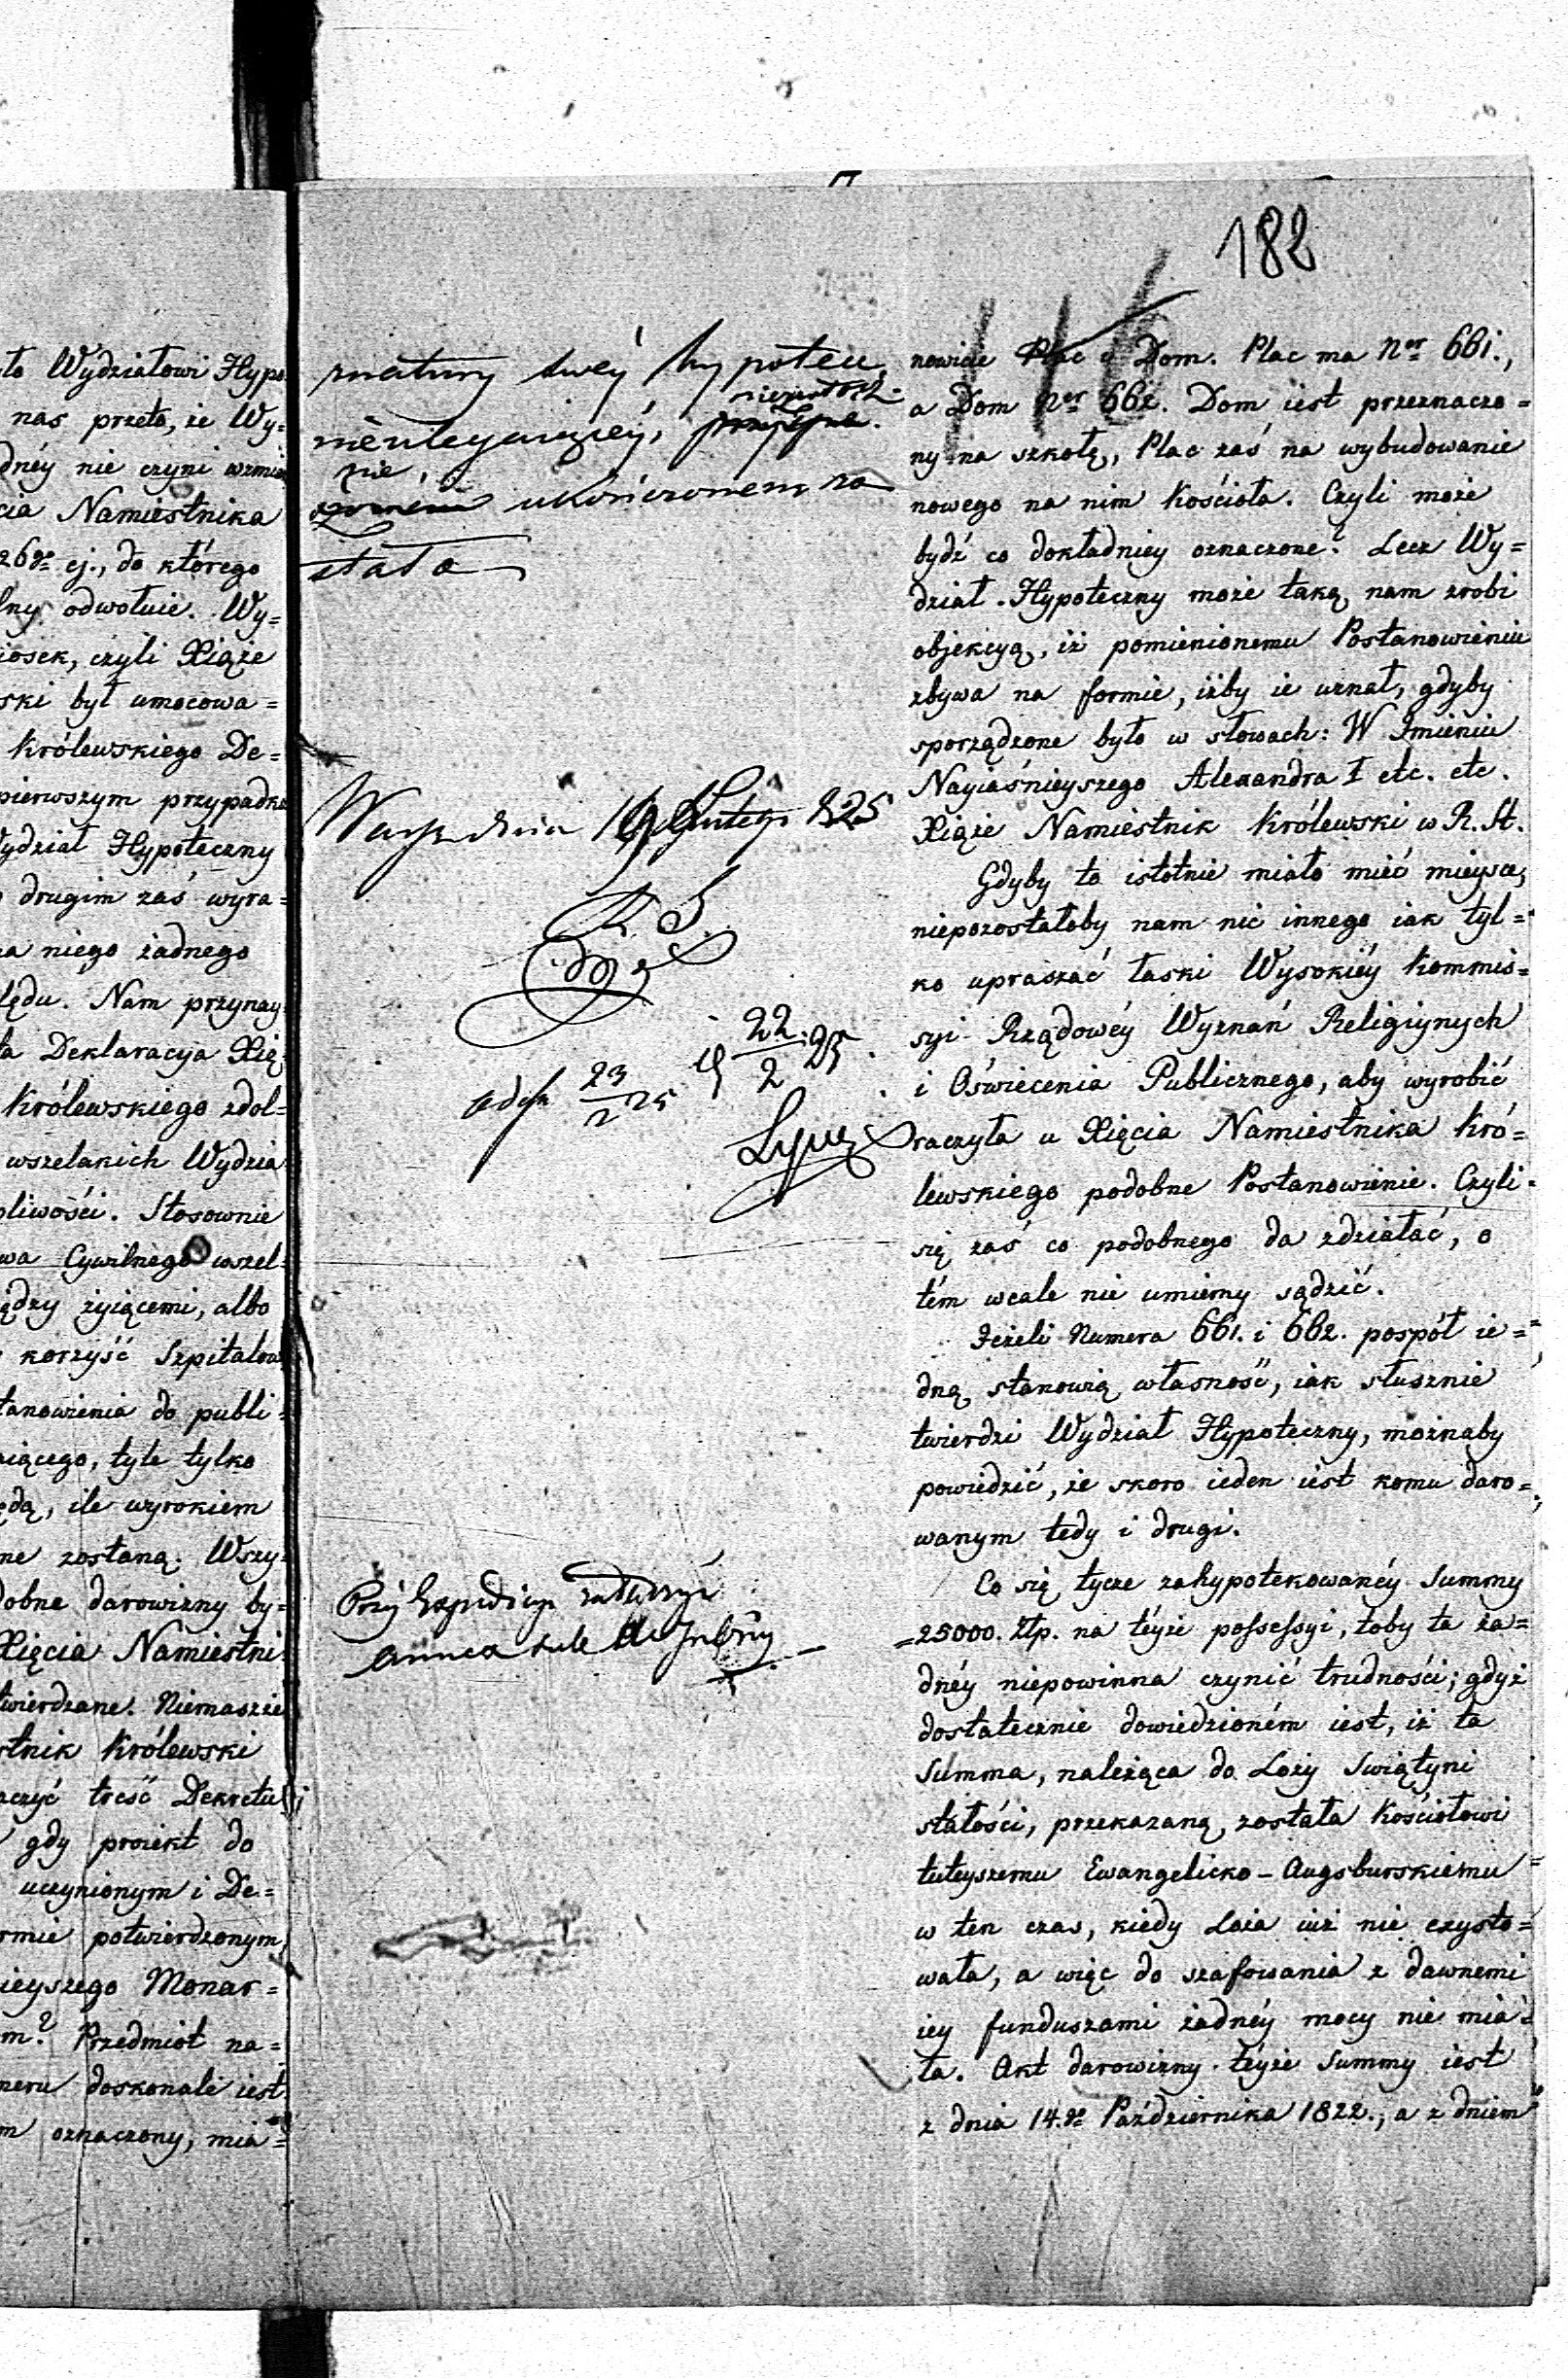 182
116
to Wydziałowi Hypo
nas przeto, że Wy=
dnéy nie czyni wzmian
cia Namiestnika
26go ej., do którego
lny odwołuie. Wy=
iosek, czyli Xiąże
ski był umocowa=
Królewskiego De=
pierwszym przypadku
ydział Hypoteczny
drugim zaś wyra=
na niego żadnego
lędu. Nam przynay
ta Deklaracya Xię=
Królewskiego zdol=
wszelakich Wydzia
pliwości. Stosownie
wa Cywilnego wszel=
iędzy żyiącemi, albo
korzyść Szpitalow
tanowienia do publi=
aiącego, tyle tylko
ędą, ile wyrokiem
ne zostaną. Wszy=
dobne darowizny by=
Xięcia Namiestni=
twierdzane. Niemaszże
stnik Królewski
aczyć treść Dekretu
gdy proiekt do
uczynionym i De=
rmie potwierdzonym
ieyszego Monar=
m? Przedmiot na=
meru doskonale iest
m oznaczony, mia=
natury swéy hypotece
nieulegaiącéy,
nie
ukończonem zo
stała
Warsz. dnia 19 Lutego 825
K. S.
22/2 25.
23/2 25
Przy Expedicyi
annex sub
nowicie Plac i Dom. Plac ma Ner 661.,
a Dom Ner 662. Dom iest przeznaczo=
ny na szkołę, Plac zaś na wybudowanie
nowego na nim Kościoła. Czyli może
bydź co dokładniey oznaczone? Lecz Wy=
dział Hypoteczny może taką nam zrobi
objekcyą, iż pomienionemu Postanowieniu
zbywa na formie, iżby ie uznał, gdyby
sporządzone było w słowach: W Imieniu
Nayiaśnieyszego Alexandra I etc. etc.
Xiąże Namiestnik Królewski w R. St.
Gdyby to istotnie miało mieć mieysce,
niepozostałoby nam nic innego iak tyl=
ko upraszać łaski Wysokiéy Kommis=
syi Rządowéy Wyznań Religiynych
i Oświecenia Publicznego, aby wyrobić
raczyła u Xięcia Namiestnika Kró=
lewskiego podobne Postanowienie. Czyli
się zaś co podobnego da zdziałać, o
tém wcale nie umiemy sądzić.
Jeżeli Numera 661. i 662. pospół ie=
dną stanowią własność, iak słusznie
twierdzi Wydział Hypoteczny, możnaby
powiedzić, że skoro ieden iest komu daro=
wanym tedy i drugi.
Co się tycze zahypotekowanéy Summy
=25000. Złp. na téyże possessyi, toby ta ża=
dnéy niepowinna czynić trudności; gdyż
dostatecznie dowiedzioném iest, iż ta
Summa, należąca do Loży Swiątyni
stałości, przekazaną została Kościołowi
tuteyszemu Ewangelicko-Augsburskiemu
w ten czas, kiedy Loża iuż nie exysto=
wała, a więc do szafowania z dawnemi
iey funduszami żadnéy mocy nie mia=
ła. Akt darowizny téyże Summy iest
z dnia 14.go Października 1822., a z dniem